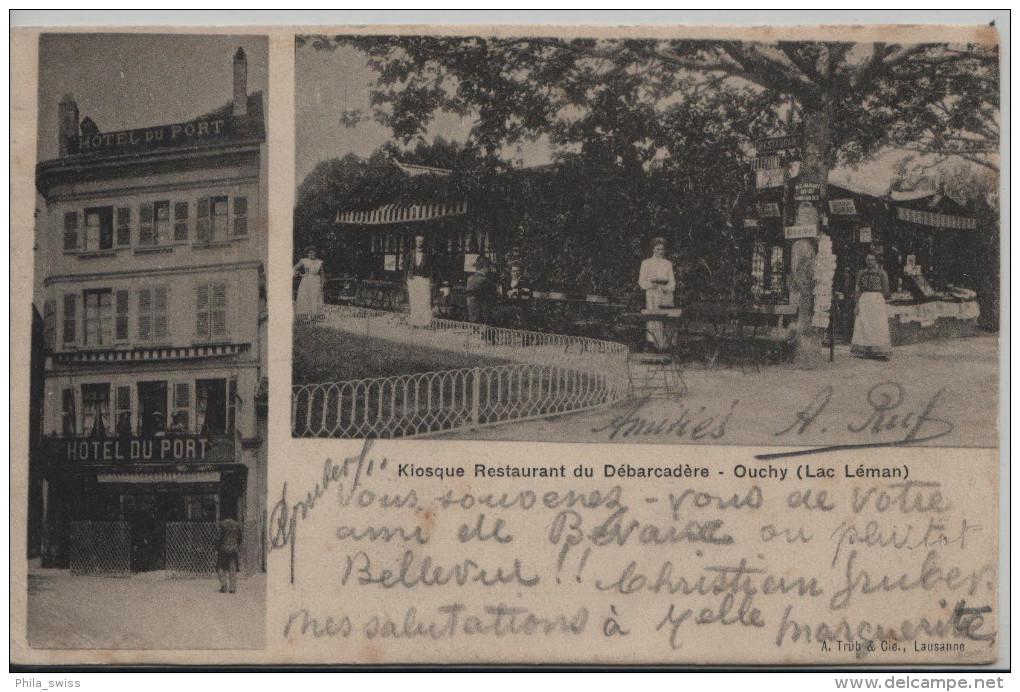 HÔTEL DU PORT
RESTAURANT
HÔTEL DU PORT
Amitiés A. Ruf
Kiosque Restaurant du Débarcadère - Ouchy (Lac Léman)
Vous souvenez-vous de votre
ami de Bevaix ou plutot
Bellevue!! Christian Gruber
Mes salutations à Melle Marguerite
A. Trüb & Cie., Lausanne
Phila_swiss
www.delcampe.net